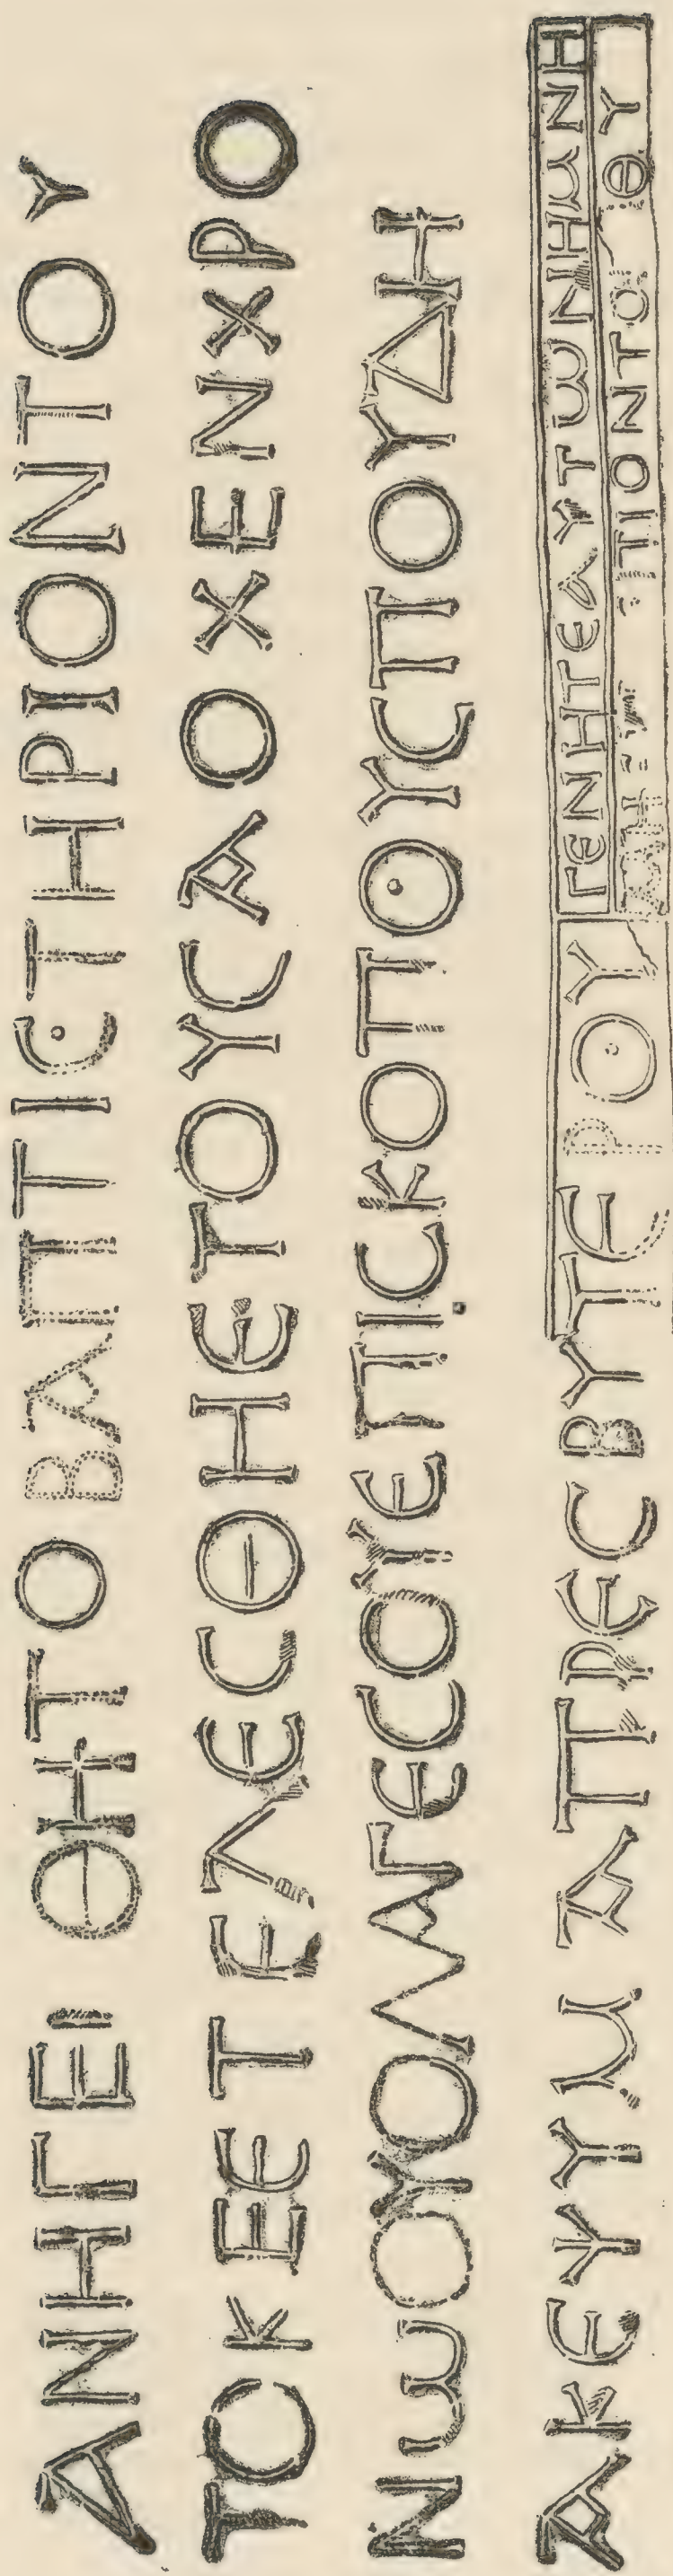 ΑΝΗΓΕΙ ΘΗΤΟ ΒΑΠΤΙϹΤΗΡΙΟΝΤΟΥ
ΤΟΚΕΕΤΕΛΕϹΘΗΕΤΟΥϹΑΟΧΕΝΧΡΟ
ΝΩΟΥΟΛΑΓΕϹΟΥΕΠΙϹΚΟΠΟΥϹΠΟΥΔΗ
ΑΚΕΨΥΜΑΠΡΕϹΒΥΤΕΡΟΥ
ΓΕΝΗΤΕΑΥΤΩΝΗΜΝΗ
ΠΙΟΝΤΟ ΘΥ